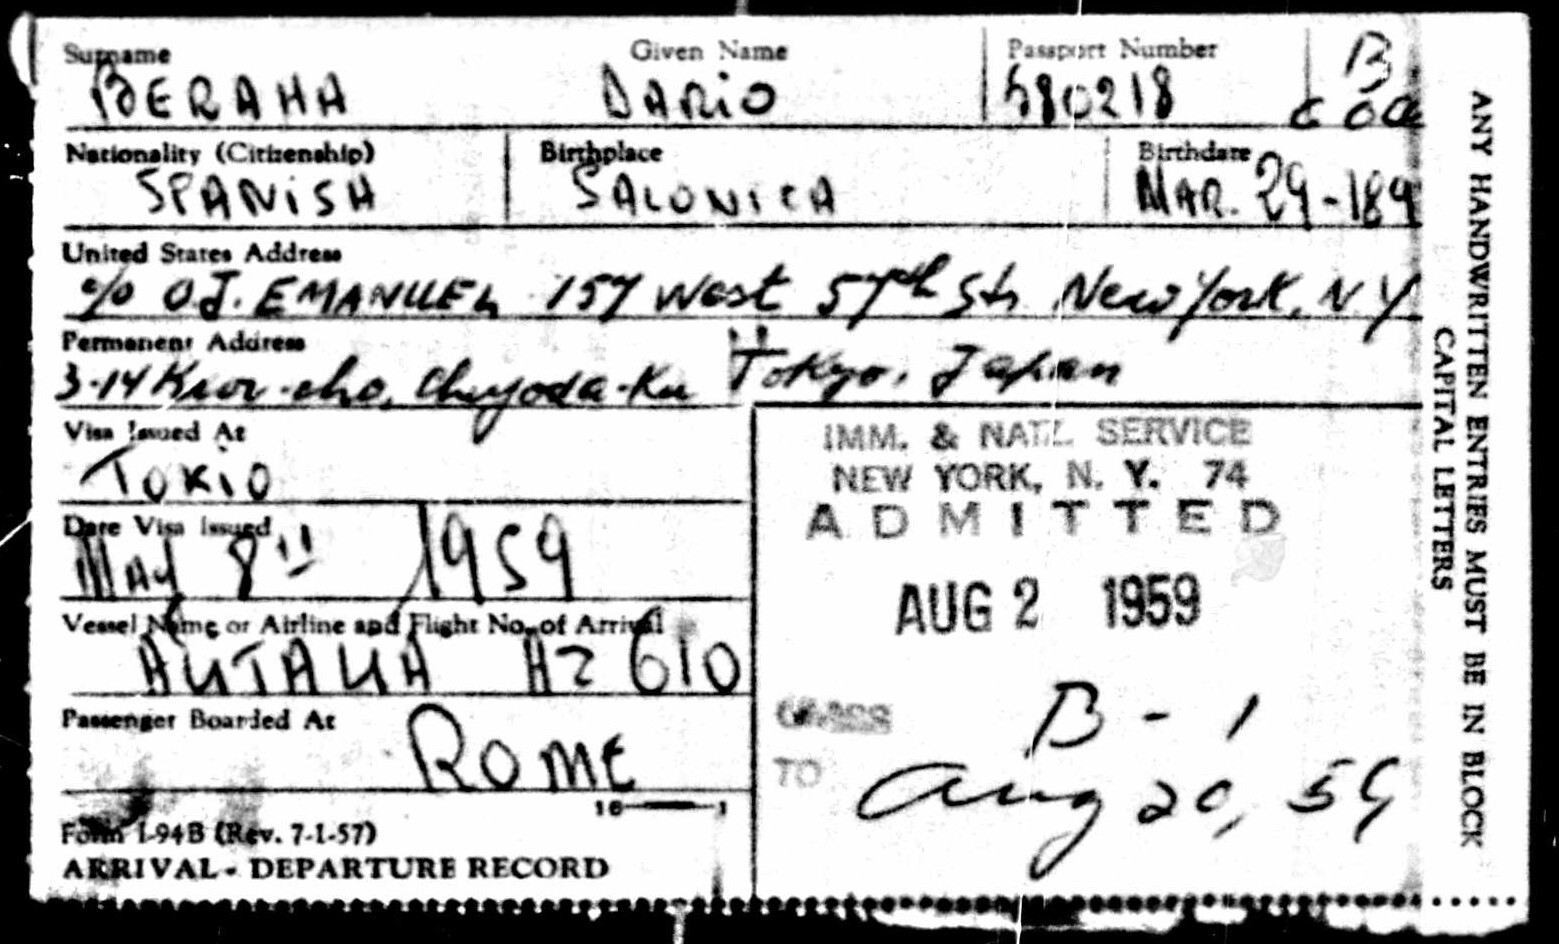 Surname Given Name Passport Number B
BERAHA DARIO 580218 600
Nationality (Citizenship) Birthplace Birthdate
SPANISH SALONICA MAR. 29-189
United States Address
c/o O.J. EMANUEL 157 West 57th St. New York, N.Y
Permanent Address
3-14 Kioi-cho, Chiyoda-Ku Tokyo, Japan
Visa Issued At
TOKIO
Date Visa Issued
May 8" 1959
Vessel Name or Airline and Flight No. of Arrival
ALITALIA AZ 610
Passenger Boarded At
Rome
16—1
Form I-94B (Rev. 7-1-57)
ARRIVAL - DEPARTURE RECORD
IMM. & NATZ. SERVICE
NEW YORK, N. Y. 74
ADMITTED
AUG 2 1959
CLASS B - 1
TO Aug 20, 59
ANY HANDWRITTEN ENTRIES MUST BE IN BLOCK
CAPITAL LETTERS